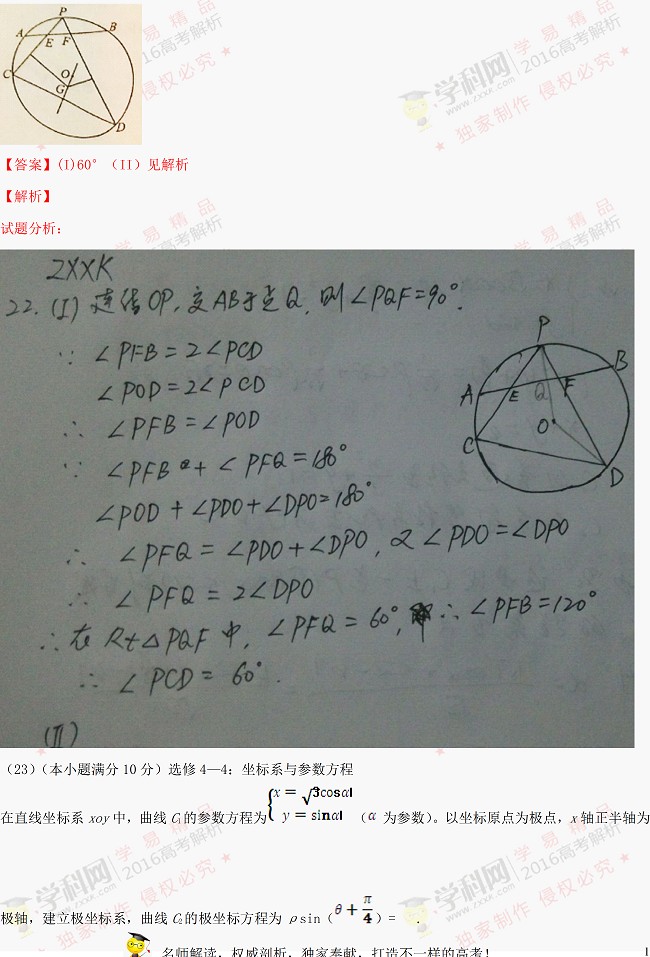 P
A
E
F
B
C
O
G
D
学科网
www.zxxk.com
学易精品
2016高考解析
独家制作 侵权必究
【答案】(I)60°（II）见解析
【解析】
试题分析：
ZXXK
22. (I) 连结OP, 交AB于点Q, 则∠PQF=90°.
∵ ∠PFB=2∠PCD
∠POD=2∠PCD
∴ ∠PFB=∠POD
∵ ∠PFB+∠PFQ=180°
∠POD+∠PDO+∠DPO=180°
∴ ∠PFQ=∠PDO+∠DPO, 又∠PDO=∠DPO
∴ ∠PFQ=2∠DPO
∴在Rt△PQF中, ∠PFQ=60°, ∴∠PFB=120°
∴ ∠PCD=60°.
(II)
P
B
A
E
Q
F
C
O
D
（23）（本小题满分10分）选修4—4：坐标系与参数方程
在直线坐标系xoy中，曲线C₁的参数方程为{x=√3cosα y=sinα（α为参数）。以坐标原点为极点，x轴正半轴为
极轴，建立极坐标系，曲线C₂的极坐标方程为ρsin（θ+π/4）= .
名师解读，权威剖析，独家奉献，打造不一样的高考！
1